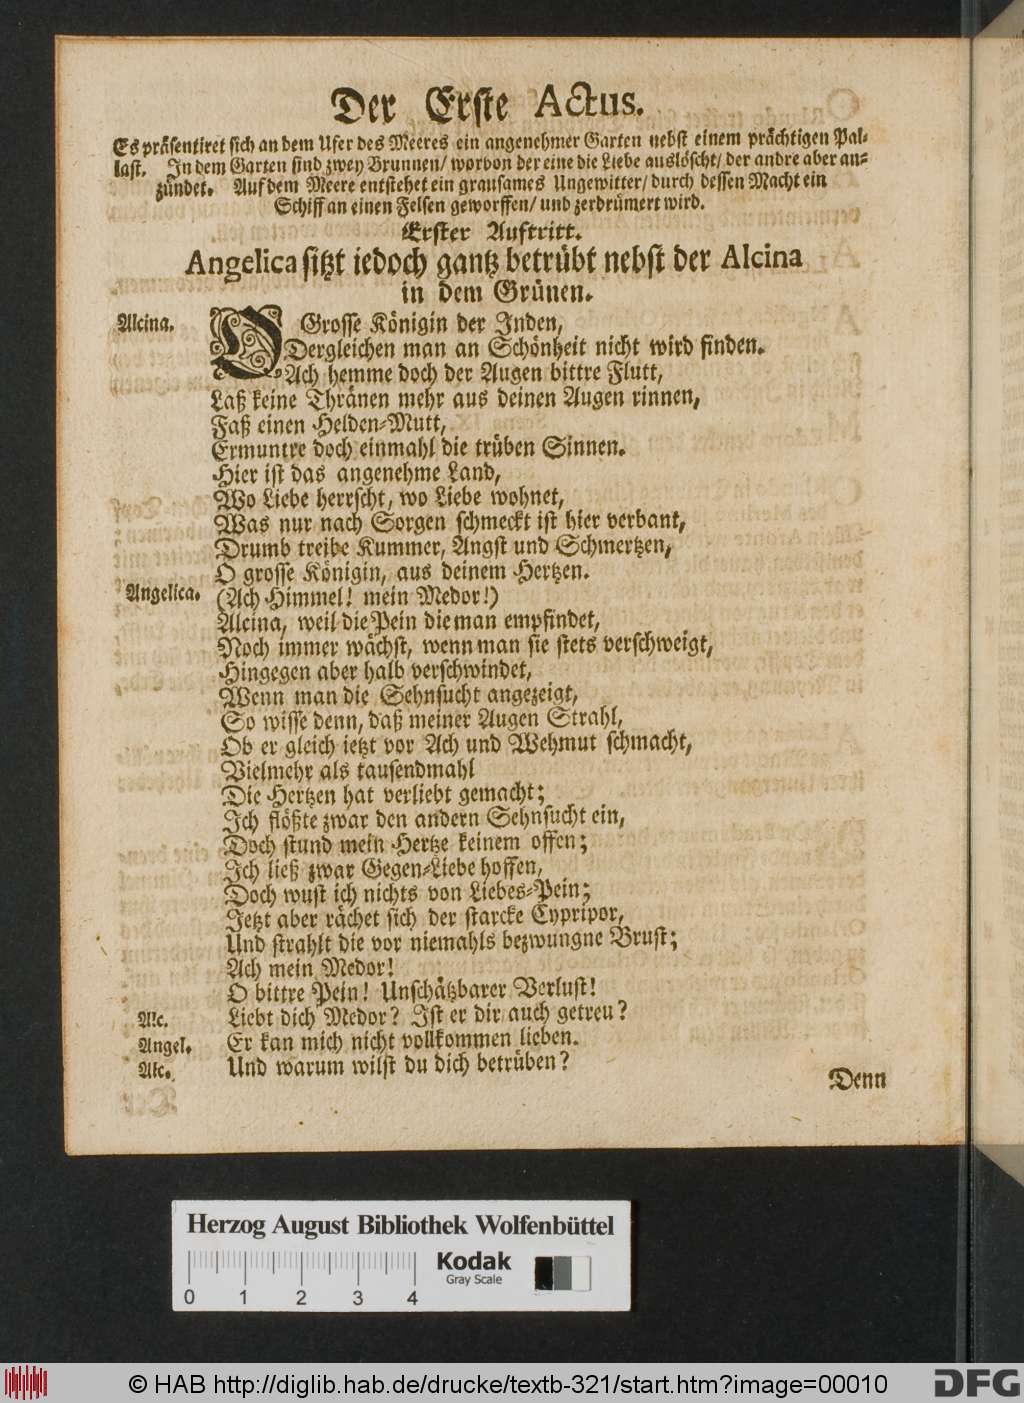 Der Erste Actus.
Es präsentiret sich an dem Ufer des Meeres ein angenehmer Garten nebst einem prächtigen Pal-
last. In dem Garten sind zwey Brunnen/ worvon der eine die Liebe auslöscht/ der andre aber an-
zündet. Auf dem Meere entstehet ein grausames Ungewitter/ durch dessen Macht ein
Schiff an einen Felsen geworffen/ und zerdrümert wird.
Erster Auftritt.
Angelica sitzt iedoch gantz betrübt nebst der Alcina
in dem Grünen.
Alcina. O Grosse Königin der Inden,
Dergleichen man an Schönheit nicht wird finden.
Ach hemme doch der Augen bittre Flutt,
Laß keine Thränen mehr aus deinen Augen rinnen,
Faß einen Helden-Mutt,
Ermuntre doch einmahl die trüben Sinnen.
Hier ist das angenehme Land,
Wo Liebe herrscht, wo Liebe wohnet,
Was nur nach Sorgen schmeckt ist hier verbant,
Drumb treibe Kummer, Angst und Schmertzen,
O grosse Königin, aus deinem Hertzen.
Angelica. (Ach Himmel! mein Medor!)
Alcina, weil die Pein die man empfindet,
Noch immer wächst, wenn man sie stets verschweigt,
Hingegen aber halb verschwindet,
Wenn man die Sehnsucht angezeigt,
So wisse denn, daß meiner Augen Strahl,
Ob er gleich ietzt vor Ach und Wehmut schmacht,
Vielmehr als tausendmahl
Die Hertzen hat verliebt gemacht;
Ich flößte zwar den andern Sehnsucht ein,
Doch stund mein Hertze keinem offen;
Ich ließ zwar Gegen-Liebe hoffen,
Doch wust ich nichts von Liebes-Pein;
Jetzt aber rächet sich der starcke Cypripor,
Und strahlt die vor niemahls bezwungne Brust;
Ach mein Medor!
O bittre Pein! Unschätzbarer Verlust!
Alc. Liebt dich Medor? Ist er dir auch getreu?
Angel. Er kan mich nicht vollkommen lieben.
Alc. Und warum wilst du dich betrüben?
Denn
Herzog August Bibliothek Wolfenbüttel
Kodak
Gray Scale
0 1 2 3 4
© HAB http://diglib.hab.de/drucke/textb-321/start.htm?image=00010
DFG